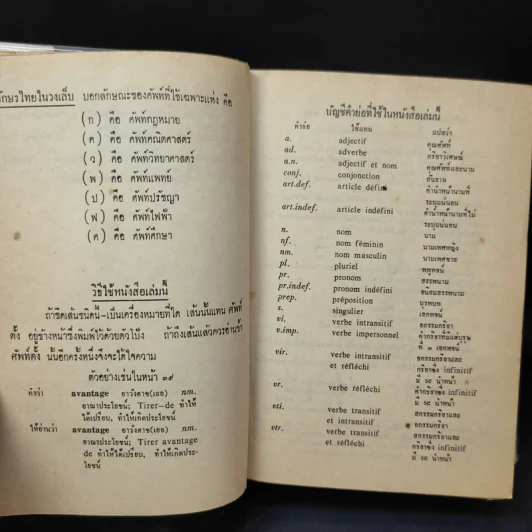 อักษรไทยในวงเล็บ บอกลักษณะของศัพท์ที่ใช้เฉพาะแห่ง คือ
(ก) คือ ศัพท์กฎหมาย
(ค) คือ ศัพท์คณิตศาสตร์
(ว) คือ ศัพท์วิทยาศาสตร์
(พ) คือ ศัพท์แพทย์
(ป) คือ ศัพท์ปรัชญา
(ฟ) คือ ศัพท์ไฟฟ้า
(ศ) คือ ศัพท์ศึกษา
วิธีใช้หนังสือเล่มนี้
ถ้าขีดเส้นขนดั่น–เป็นเครื่องหมายที่ใด เส้นนั้นแทน ศัพท์
ตั้ง อยู่ข้างหน้าซึ่งพิมพ์ไว้ด้วยตัวโป้ง ถ้าถึงเส้นแล้วควรอ่านซ้ำ
ศัพท์ตั้ง นั้นอีกครั้งหนึ่งจึงจะได้ใจความ
ตัวอย่างเช่นในหน้า ๓๙
คำว่า avantage อาวังตาช(เยอ) nm.
อาณาประโยชน์; Tirer–de ทำให้
ได้เปรียบ, ทำให้เกิดประโยชน์
ให้อ่านว่า avantage อาวังตาช(เยอ) nm.
อาณาประโยชน์; Tirer avantage
de ทำให้ได้เปรียบ, ทำให้เกิดประ-
โยชน์
บัญชีคำย่อที่ใช้ในหนังสือเล่มนี้
คำย่อ ใช้แทน แปลว่า
a. adjectif คุณศัพท์
ad. adverbe กริยาวิเศษณ์
a.n. adjectif et nom คุณศัพท์และนาม
conj. conjonction สันธาน
art.def. article défini คำนำหน้านามที่
ระบุแน่นอน
art.indef. article indéfini คำนำหน้านามที่ไม่
ระบุแน่นอน
n. nom นาม
nf. nom féminin นามเพศหญิง
nm. nom masculin นามเพศชาย
pl. pluriel พหูพจน์
pr. pronom สรรพนาม
pr.indef. pronom indéfini อนิยมสรรพนาม
prep. préposition บุรพบท
s. singulier เอกพจน์
vi. verbe intransitif อกรรมกริยา
v.imp. verbe impersonnel คำกริยาที่มีแต่บุรุษ
ที่ ๓ เอกพจน์
vir. verbe intransitif อกรรมกริยาและ
et réfléchi กริยาซึ่ง infinitif
มี se นำหน้า
vr. verbe réfléchi คำกริยาซึ่ง infinitif
มี se นำหน้า
vti. verbe transitif สกรรมกริยาและ
et intransitif อกรรมกริยา
vtr. verbe transitif สกรรมกริยาและ
et réfléchi คำกริยาซึ่ง infinitif
มี se นำหน้า